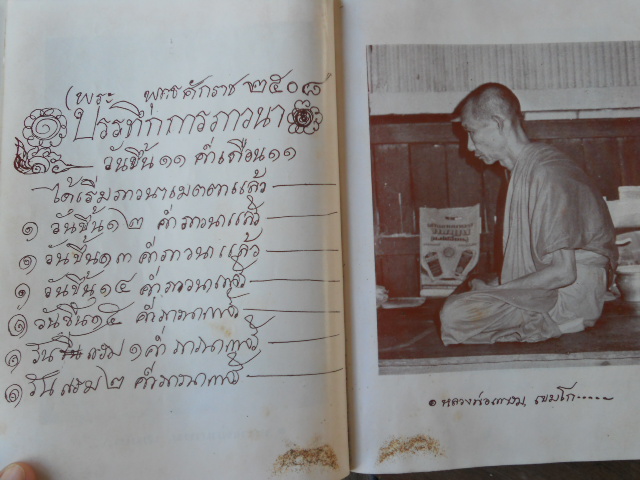 (พระ พุทธศักราช ๒๕๐๘
บรรทึกการภาวนา
วันขึ้น ๑๑ ค่ำเดือน ๑๑
ได้เริ่มภาวนาเมตตาแล้ว
๑ วันขึ้น ๑๒ ค่ำ ภาวนาแล้ว
๑ วันขึ้น ๑๓ ค่ำ ภาวนาแล้ว
๑ วันขึ้น ๑๔ ค่ำ ภาวนาแล้ว
๑ วันขึ้น ๑๕ ค่ำ ภาวนาแล้ว
๑ วัน แรม ๑ ค่ำ ภาวนาแล้ว
๑ วัน แรม ๒ ค่ำ ภาวนาแล้ว
๑ หลวงพ่อเกษม เขมโก